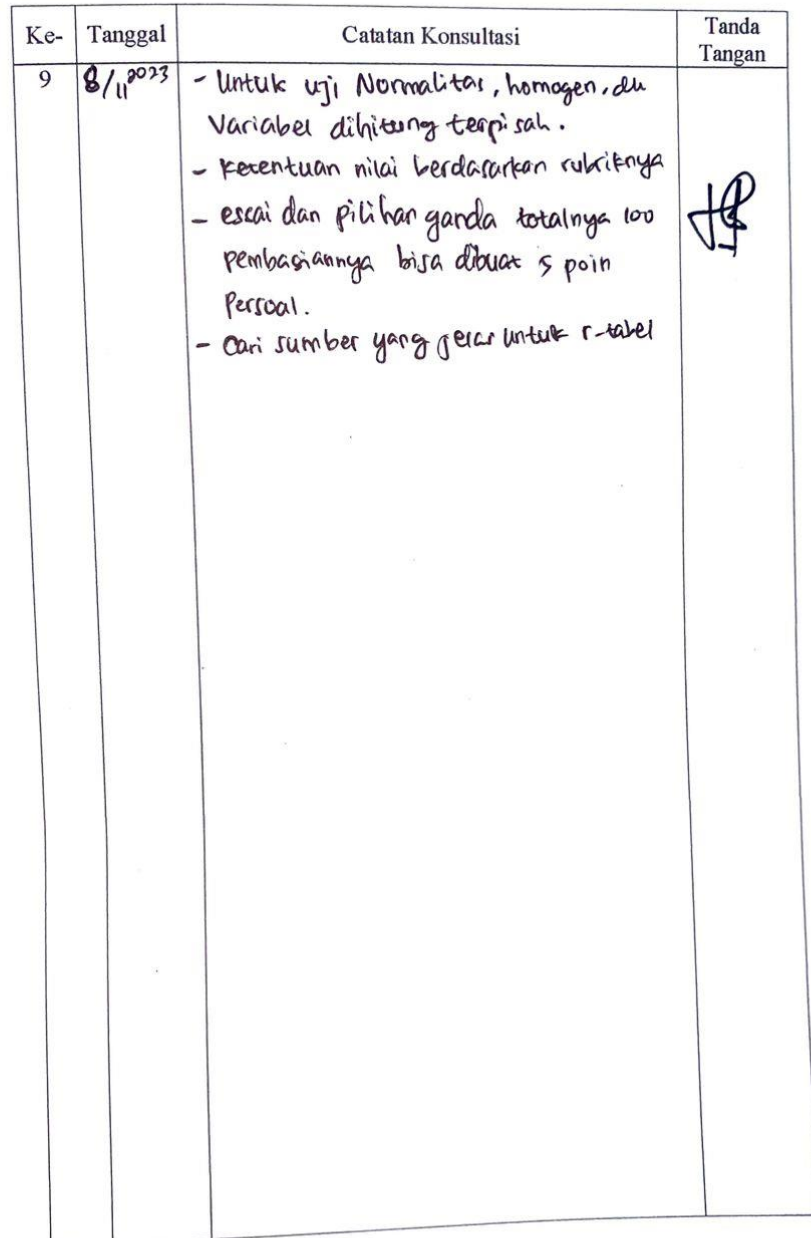 Ke- Tanggal Catatan Konsultasi Tanda Tangan
9 8/11 2023 - Untuk uji Normalitas, homogen, dll
Variabel dihitung terpisah.
- Ketentuan nilai berdasarkan rubriknya
- escai dan pilihan ganda totalnya 100
pembagiannya bisa dibuat 5 poin
Persoal.
- Cari sumber yang jelas untuk r-tabel